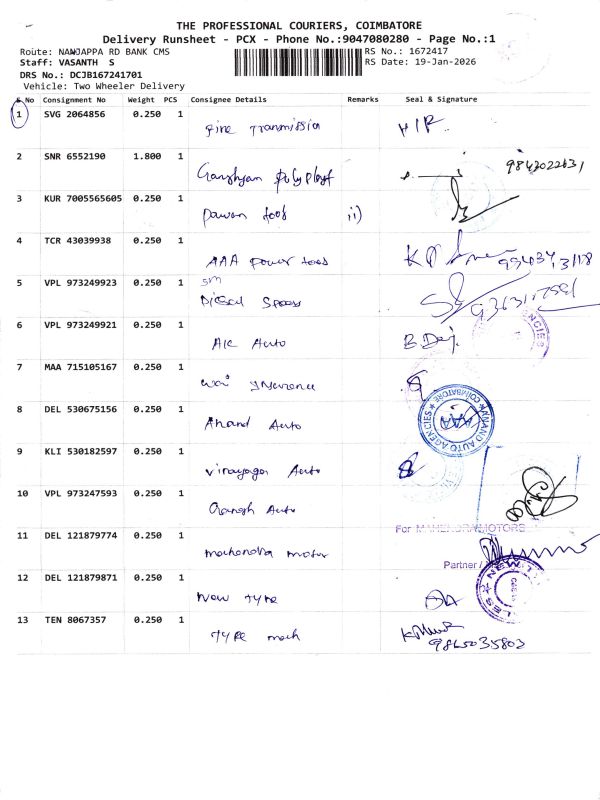 THE PROFESSIONAL COURIERS, COIMBATORE
Delivery Runsheet - PCX - Phone No.:9047080280 - Page No.:1
Route: NANJAPPA RD BANK CMS RS No.: 1672417
Staff: VASANTH S RS Date: 19-Jan-2026
DRS No.: DCJB167241701
Vehicle: Two Wheeler Delivery
S No Consignment No Weight PCS Consignee Details Remarks Seal & Signature
1 SVG 2064856 0.250 1 Fine Transmission
2 SNR 6552190 1.800 1 9843022631
3 KUR 7005565605 0.250 1 Pawan tools ii)
4 TCR 43039938 0.250 1 AAA Power tools
5 VPL 973249923 0.250 1 SM
Diesel Spares
6 VPL 973249921 0.250 1 Auto
7 MAA 715105167 0.250 1
8 DEL 530675156 0.250 1 Anand Auto
ANAND AUTO AGENCIES COIMBATORE
9 KLI 530182597 0.250 1 Vinayaga Auto
10 VPL 973247593 0.250 1 Ganesh Auto
For MAHENDRA MOTORS
11 DEL 121879774 0.250 1 Mahendra Motor
Partner /
12 DEL 121879871 0.250 1 New Tyre
13 TEN 8067357 0.250 1 Tyre mech
9865035802